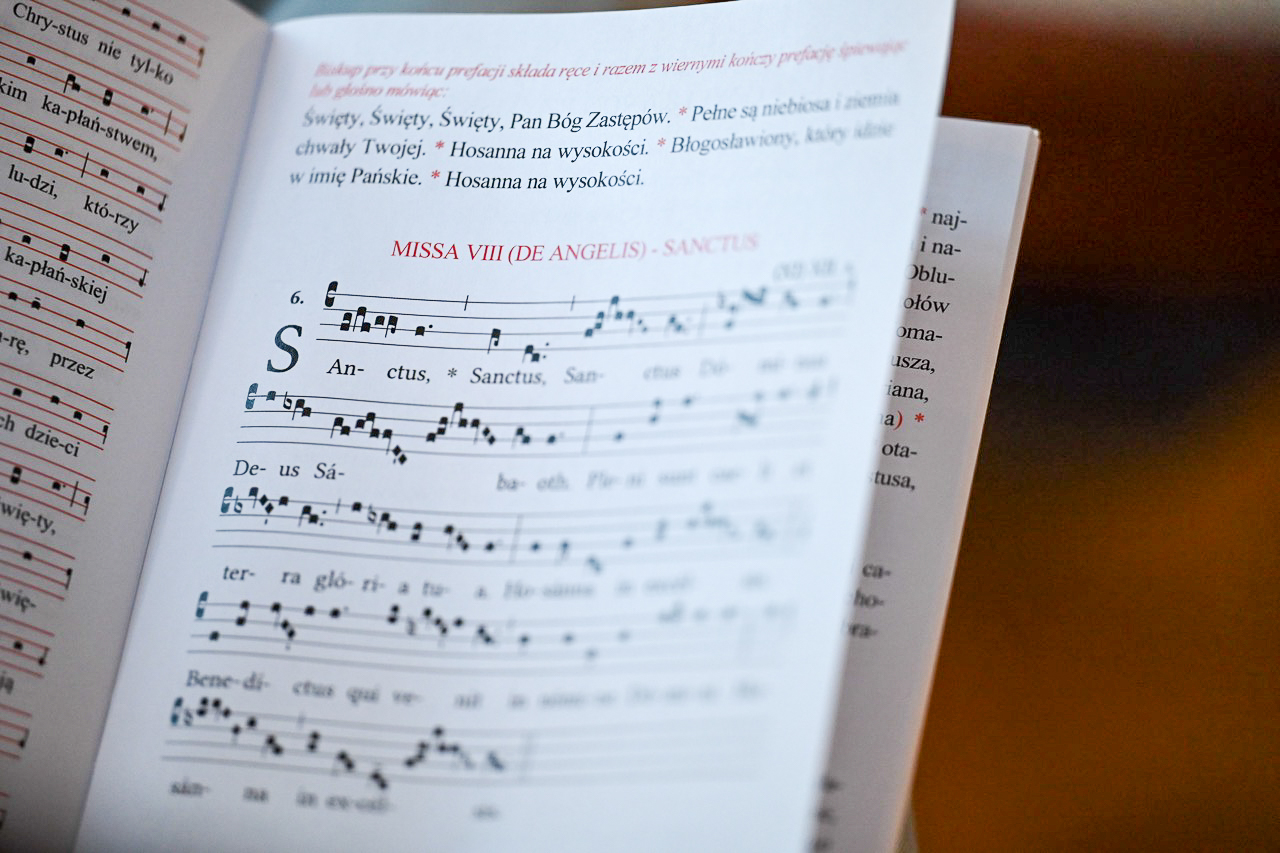 Chry-stus nie tyl-ko
kim ka-płań-stwem,
lu-dzi, któ-rzy
ka-płań-skiej
-rę, przez
ch dzie-ci
świę-ty,
wię-
ją
Biskup przy końcu prefacji składa ręce i razem z wiernymi kończy prefację śpiewając
lub głośno mówiąc:
Święty, Święty, Święty, Pan Bóg Zastępów. * Pełne są niebiosa i ziemia
chwały Twojej. * Hosanna na wysokości. * Błogosławiony, który idzie
w imię Pańskie. * Hosanna na wysokości.
MISSA VIII (DE ANGELIS) - SANCTUS
6.
SAn- ctus, * Sanctus, San- ctus Dó- mi- nus
De- us Sá- ba- oth. Ple- ni sunt
ter- ra gló- ri- a tu- a. Ho- sánna in
Bene- dí- ctus qui ve- nit in
sán- na in ex-cél- sis.
* naj-
i na-
Oblu-
ołów
oma-
usza,
iana,
a) *
ota-
tusa,
ca-
ho-
ra-